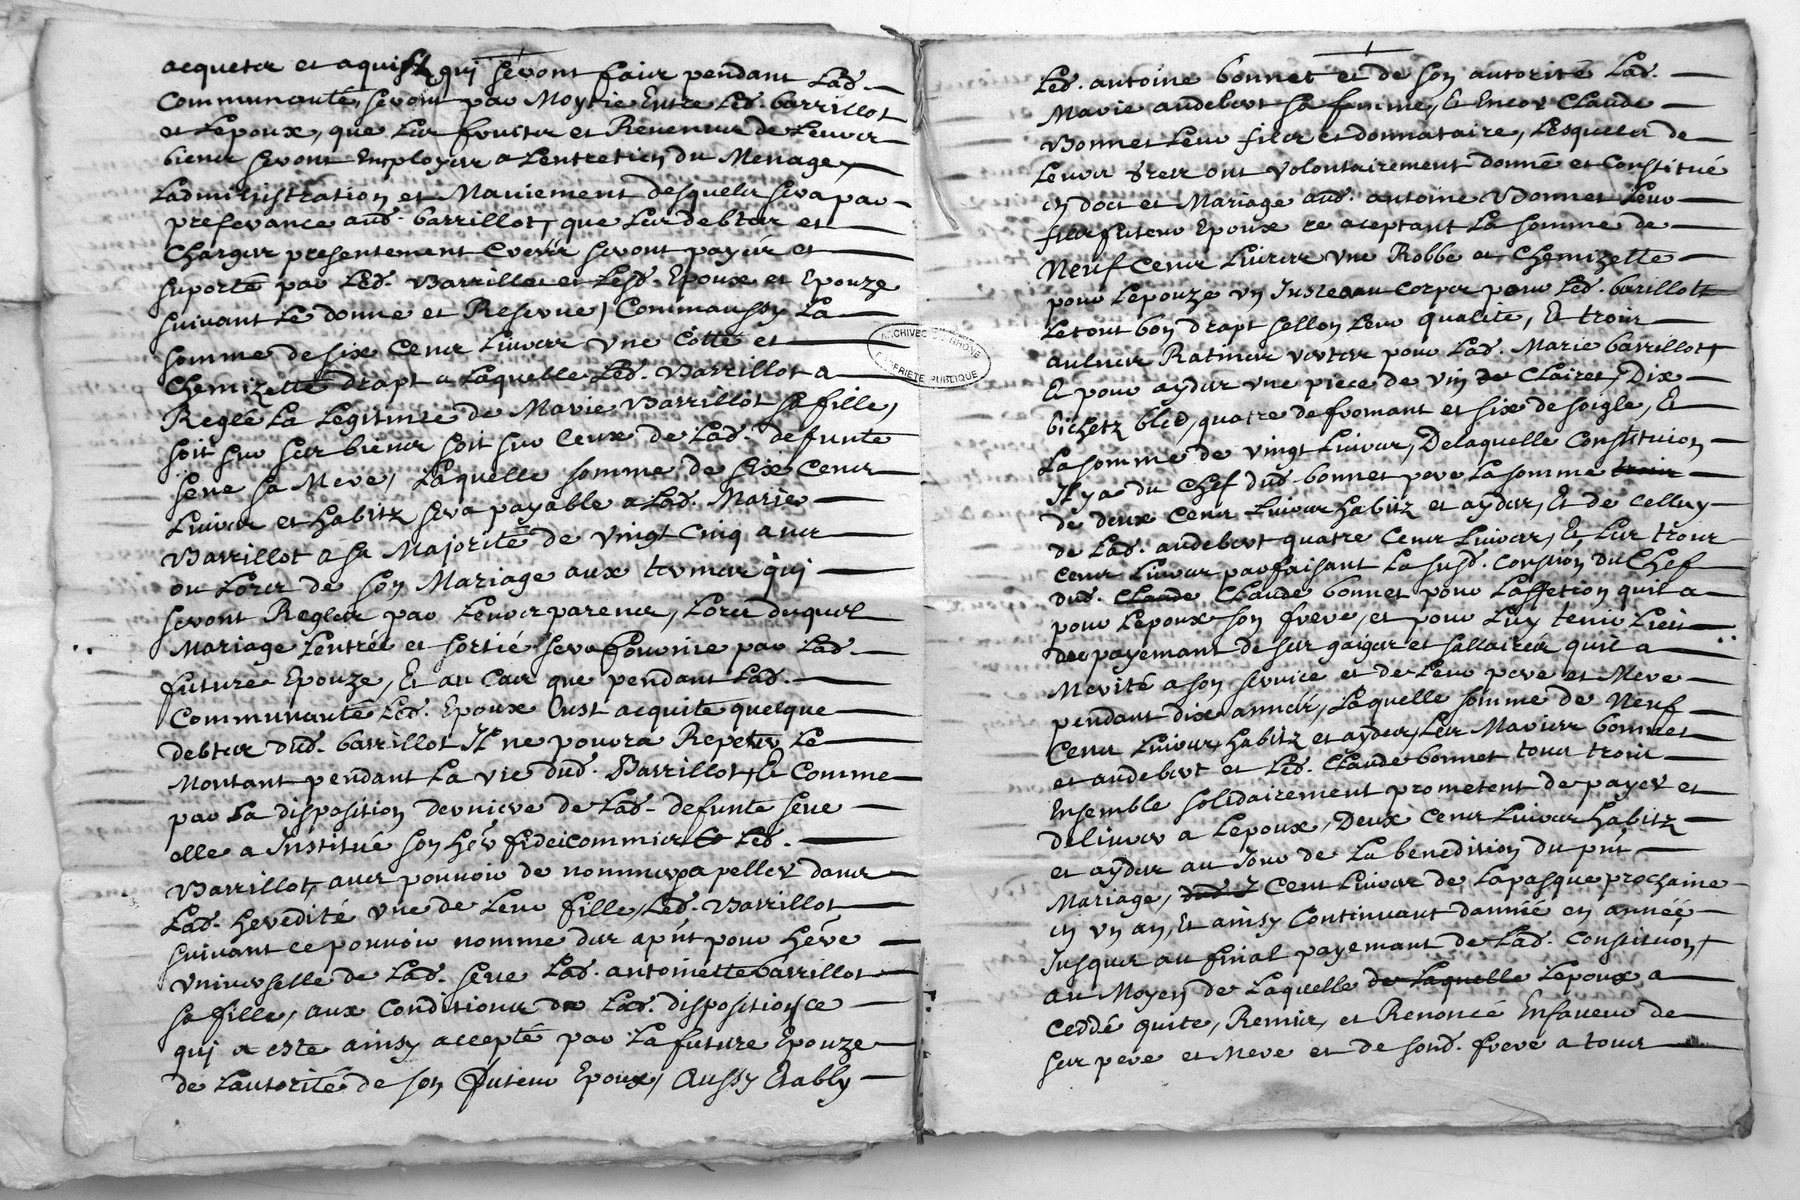 acquetz et aquisz qui seront fair pendant Lad.
Communauté, seront par Moytie Entre Led. barrillot
et Lepoux, que Les fruictz et Revenus de Leurs
biens seront Employez a Lentretien du Menage,
Ladministration et Maniement desquels sera par
preferance aud. barrillot, que Les debtes et
Charges presentement Creées seront payés et
suporté par Led. Barrillot et Lesd. Epoux et Epouze
suivant Le donne et Reserve, Comm'aussy La
somme de six Cens Livres Une Cotte et
Chemizette drapt a Laquelle Led. Barrillot a
Reglé La Legitime de Marie Barrillot sa fille,
soit sur ses biens soit sur Ceux de Lad. defunte
seve sa Mere, Laquelle somme de six Cens
Livres et habitz sera payable a Lad. Marie
Barrillot a sa Majorité de vingt Cinq ans
ou Lors de son Mariage aux termes qui
seront Reglez par Leurs parens, Lors duquel
Mariage Lentrée et sortié sera fournie par Lad.
future Epouze, Et au Cas que pendant Lad.
Communauté Led. Epoux Eust acquité quelque
debtes dud. barrillot Il ne pourra Repeter Le
Montant pendant La vie dud. Barrillot, Et Comme
par La disposition derniere de Lad. defunte seve
elle a Institué son her fideicommis Led.
Barrillot, avec pouvoir de nommer apeller dans
Lad. heredité une de Leur fille, Led. Barrillot
suivant ce pouvoir nomme des apnt pour here
Universelle de Lad. seve Lad. antoinette barrillot
sa fille, aux Conditions de Lad. disposition, ce
qui a esté ainsy accepté par La future Epouze
de Lautorité de son futeur Epoux, Aussy Etably
Led. antoine bonnet et de son autorité Lad.
Marie audebert sa femme, Et Encor Claude
Bonnet Leur filz et donnataire, Lesquels de
Leurs grez ont volontairement donné et Constitué
en doct et Mariage aud. antoine Bonnet Leur
filz futeur Epoux ce aceptant La somme de
Neuf Cens Livres une Robbe et Chemizette
pour Lepouze un Justeaucorps pour Led. barillott
Le tout bon drapt sellon Leur qualité, Et trois
aulnes Ratines vertes pour Lad. Marie barrillot,
Et pour aydes une piece de vin de Clairet, Dix
bichetz bled, quatre de fromant et six de soigle, Et
La somme de vingt Livres, De laquelle Constitution
Il y a du Chef dud. bonnet pere La somme trois
de deux Cens Livres habitz et aydes, Et de celluy
de Lad. audebert quatre Cens Livres, Et Les trois
cens Livres parfaisant La susd. Constion du Chef
dud. Claude Claude bonnet pour Laffetion quil a
pour Lepoux son frere, et pour Luy tenir Lieu
de payemant de ses gaiges et sallaires quil a
Merité a son service et de Leur pere et Mere
pendant dix annés, Laquelle somme de Neuf
Cens Livres habitz et aydes, Les Mariers bonnet
et audebert et Led. Claude bonnet tous trois
Ensemble solidairement prometent de payer et
delivrer a Lepoux, Deux Cens Livres habitz
et aydes au Jour de La benedition du pnt
Mariage, Cent Livres de Lapasque prochaine
en un an, Et ainsy Continuant dannée en année
Jusques au final payemant de Lad. Constitution,
au Moyen de Laquelle de Laquelle Lepoux a
ceddé quite, Remis, et Renoncé Enfaveur de
ses pere et Mere et de sond. frere a tous
ARCHIVES DU RHONE
PROPRIETE PUBLIQUE